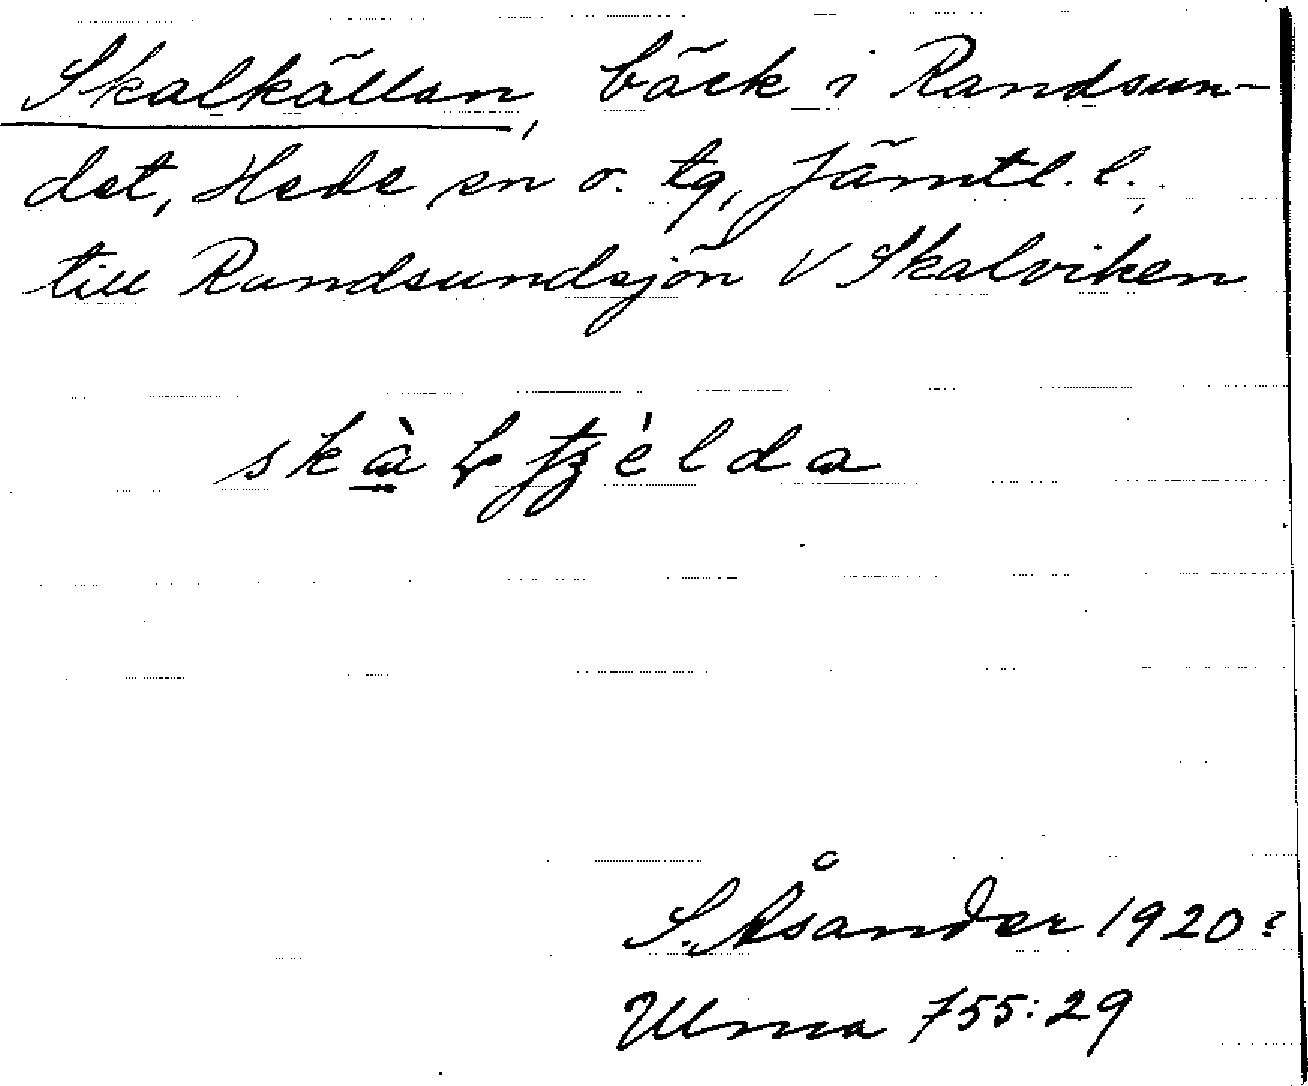 Skalkällan, bäck i Randsun-
det, Hede sn o. tg, Jämtl. l.,
till Randsundsjön V Skalviken
S. Åsander 1920?
Ulma 755:29